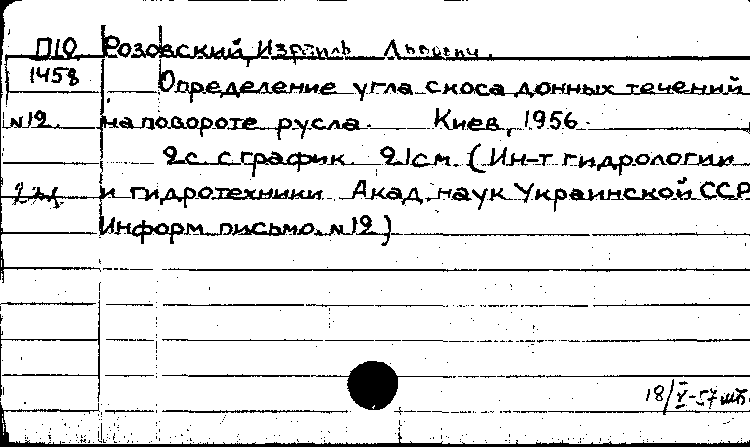 П10 Розовский, Израиль Львович.
1458 Определение угла скоса донных течений
№12. на повороте русла. Киев, 1956.
2с. с график. 21см. (Ин-т гидрологии
и гидротехники Акад. наук Украинской ССР
Информ. письмо. №12)
18/V-57